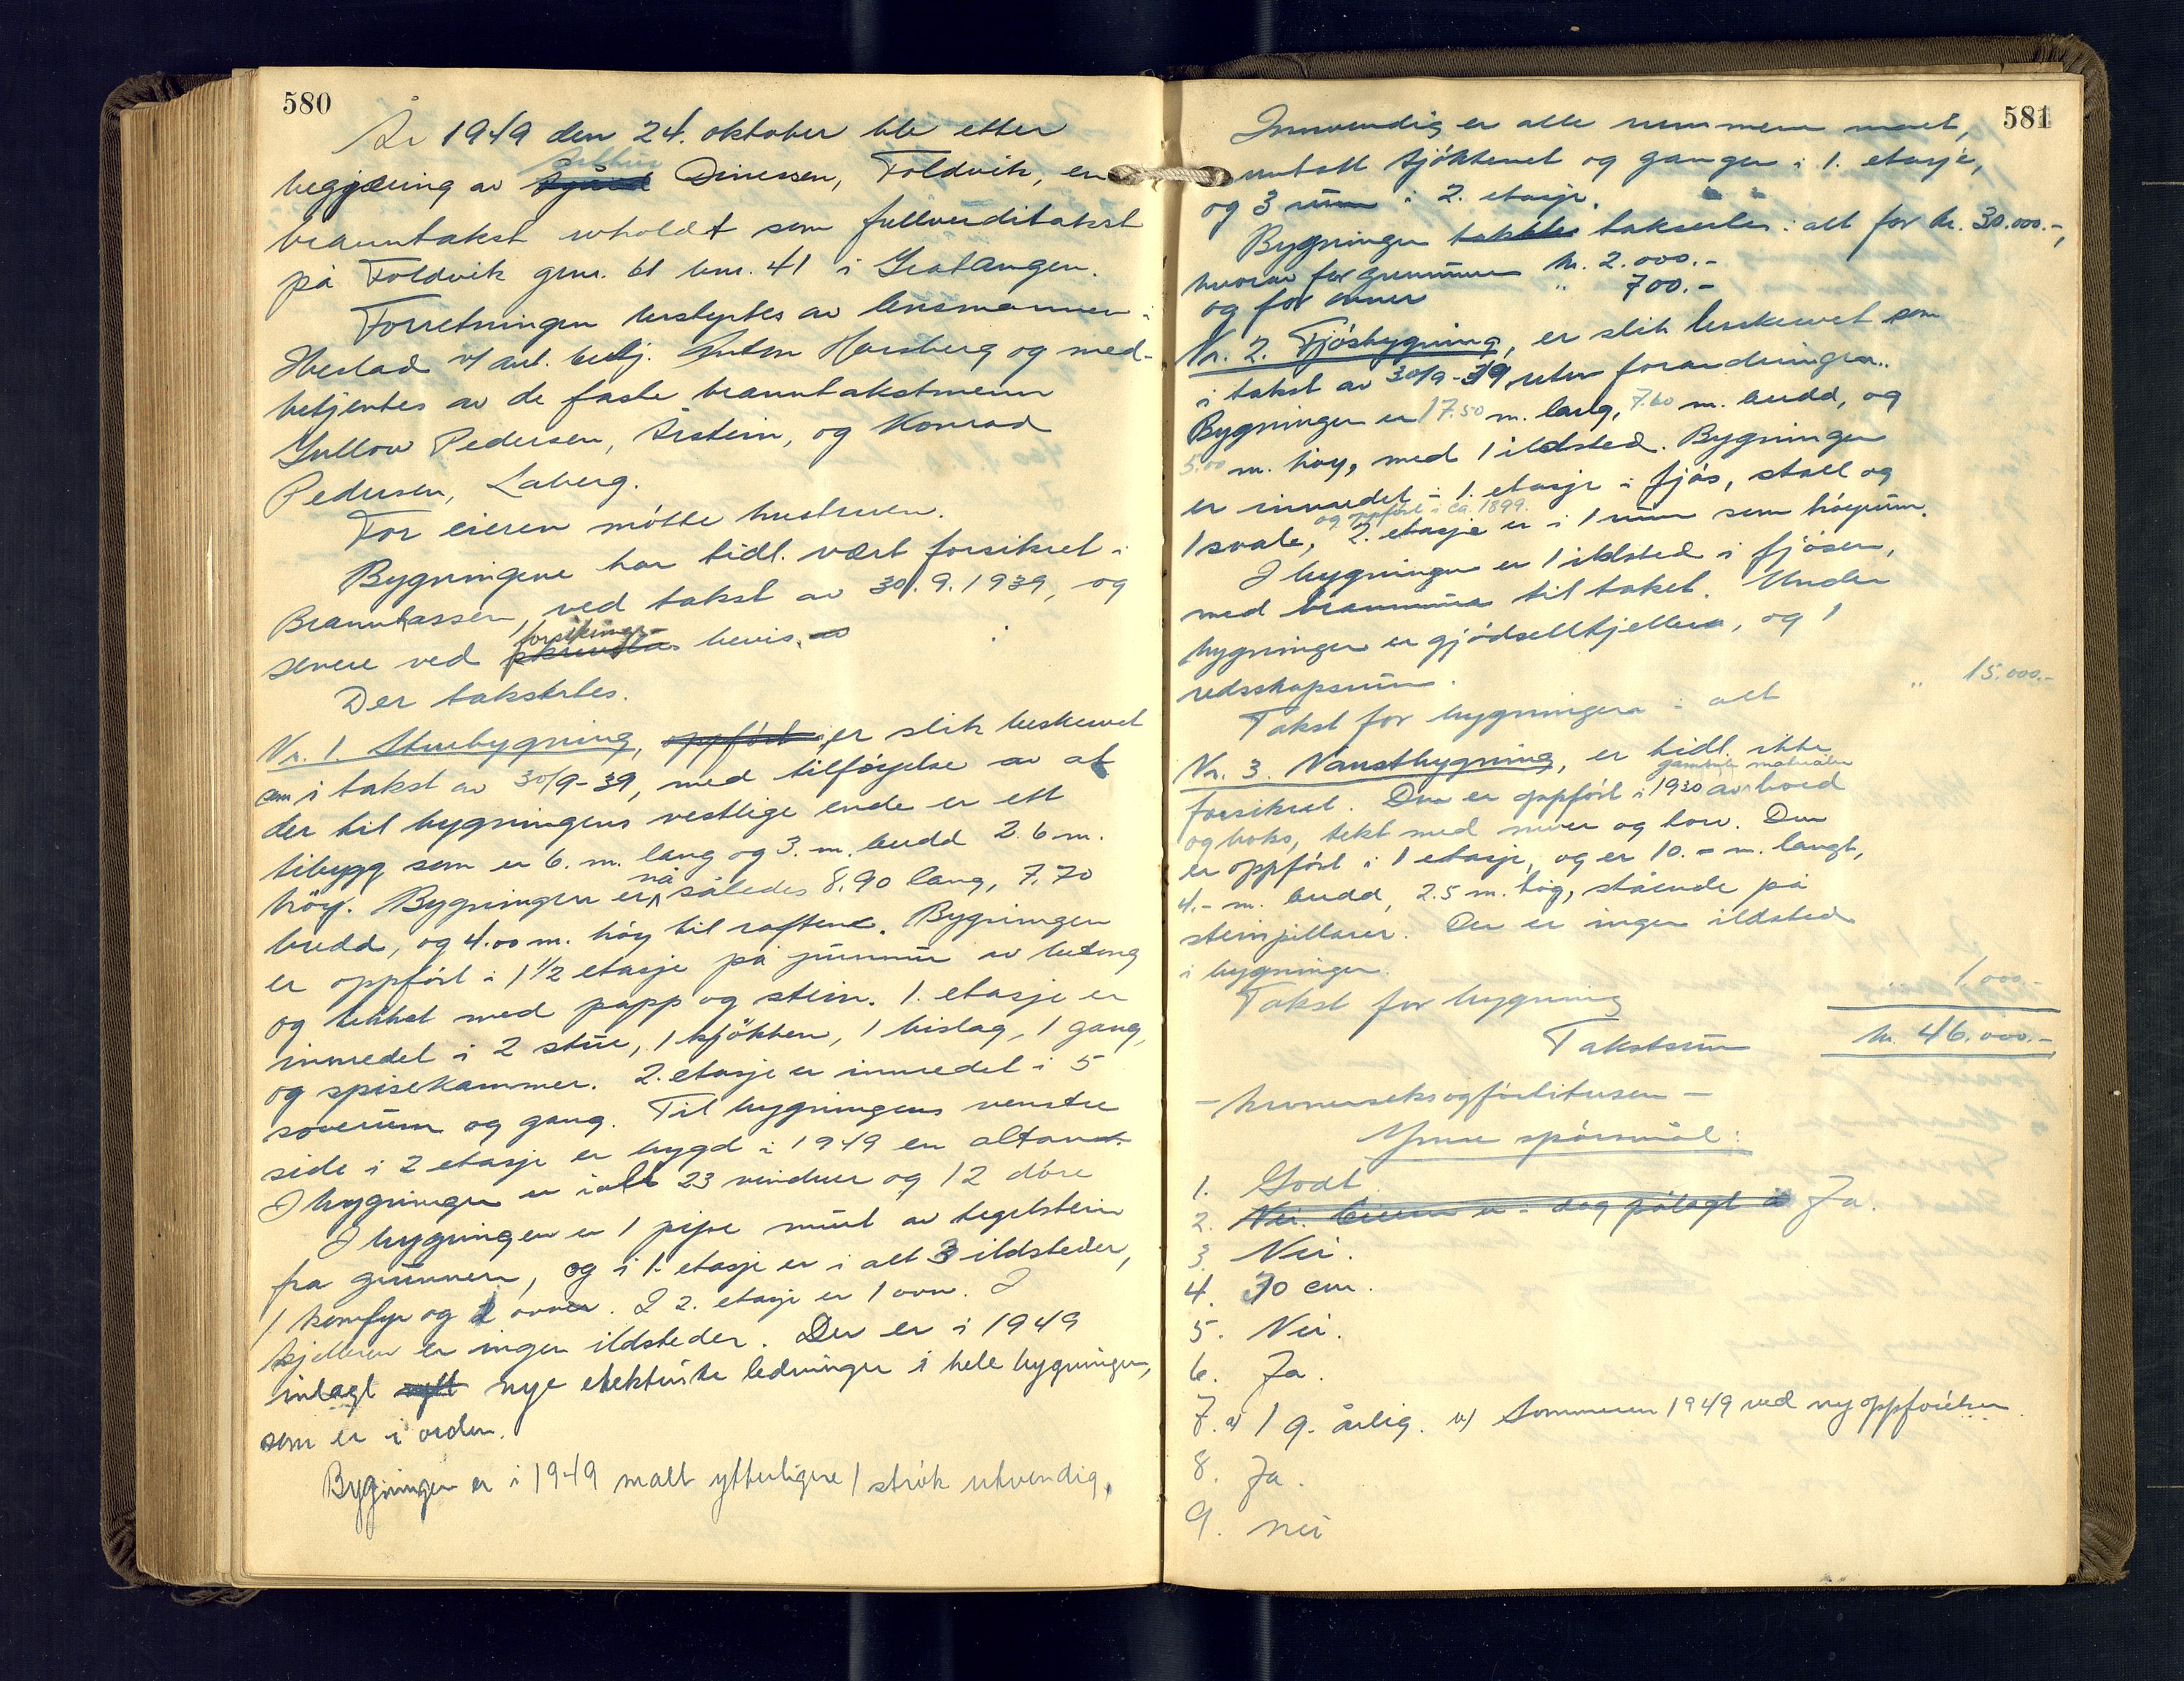 580
År 1949 den 24. oktober ble etter
Arthur
beggjæring av Dinessen, Foldvik, en
branntakst avholdt som fullverditakst
på Foldvik gnr. 61 bnr. 41 i Gratangen.
Forretningen bestyrtes av lensmannen i
Ibestad v/ aut. betj. Anton Harsberg og med-
betjentes av de faste branntakstmenn
Gullow Pedersen, Årstein, og Konrad
Pedersen, Laberg.
For eieren møtte hustruen.
Bygningene har tidl. vært forsikret i
Brannkassen, ved takst av 30.9.1939, og
forsikrings-
senere ved bevis.
Der takstertes.
Nr. 1. Stuebygning, oppført i er slik beskrevet
som i takst av 30/9-39, med tilføyelse av at
der til bygningens vestlige ende er ett
tibygg som er 6. m. lang og 3. m. bredd 2.6 m.
nå
høy. Bygningen er således 8.90 lang, 7.70
bredd, og 4.00 m. høy til raftene. Bygningen
er oppført i 1 1/2 etasje på grunnmur av betong
og tekket med papp og stein. 1. etasje er
innredet i 2 stue, 1 kjøkken, 1 bislag, 1 gang,
og spisekammer. 2. etasje er innredet i 5
soverum og gang. Til bygningens venstre
side i 2 etasje er bygd i 1949 en altan
I bygningen er ialt 23 vinduer og 12 døre
I bygningen er 1 pipe murt av teglstein
fra grunnen, og i 1. etasje er i alt 3 ildsteder,
1 komfyr og 2 ovner. I 2. etasje er 1 ovn. I
kjelleren er ingen ildsteder. Der er i 1949
inlagt nytt nye elektriske ledninger i hele bygningen,
som er i orden.
Bygningen er i 1949 malt ytterligere 1 strøk utvendig.
581
Innvendig er alle rummene malt,
untatt kjøkkenet og gangen i 1. etasje,
og 3 rum i 2. etasje.
Bygningen taksertes i alt for kr. 30.000.-,
hvorav for grunnmur kr. 2.000.-
og for ovner " 700.-
Nr. 2. Fjøsbygning, er slik beskrevet som
i takst av 30/9-39 uten forandringer.
Bygningen er 17.50 m. lang, 7.60 m. bredd, og
5.00 m. høy, med 1 ildsted. Bygningen
er innredet i 1. etasje i fjøs, stall og
og oppført i ca. 1899.
1 svale, 2. etasje er i 1 rum som høyrum.
I bygningen er 1 ildsted i fjøsen,
med brannmur til taket. Under
bygningen er gjødsellkjeller, og 1
redsskapsrum.
Takst for bygningen i alt " 15.000.-
Nr. 3. Naustbygning, er tidl. ikke
gamle materialer
forsikret. Den er oppført i 1930 av bord
og boks, tekt med never og torv. Den
er oppført i 1 etasje, og er 10.- m. langt,
4.- m. bredd, 2.5 m. høg, stående på
steinpillarer. Der er ingen ildsted
i bygningen.
Takst for bygning " 1.000.-
Takstsum kr. 46.000.-
- kronerseksogførtitusen -
Ymse spørsmål:
1. Godt
2. Nei. Eieren er i dag pålagt Ja.
3. Nei.
4. 30 cm.
5. Nei.
6. Ja.
7. a) 1 g. årlig. b) Sommeren 1949 ved ny oppførelsen
8. Ja.
9. nei